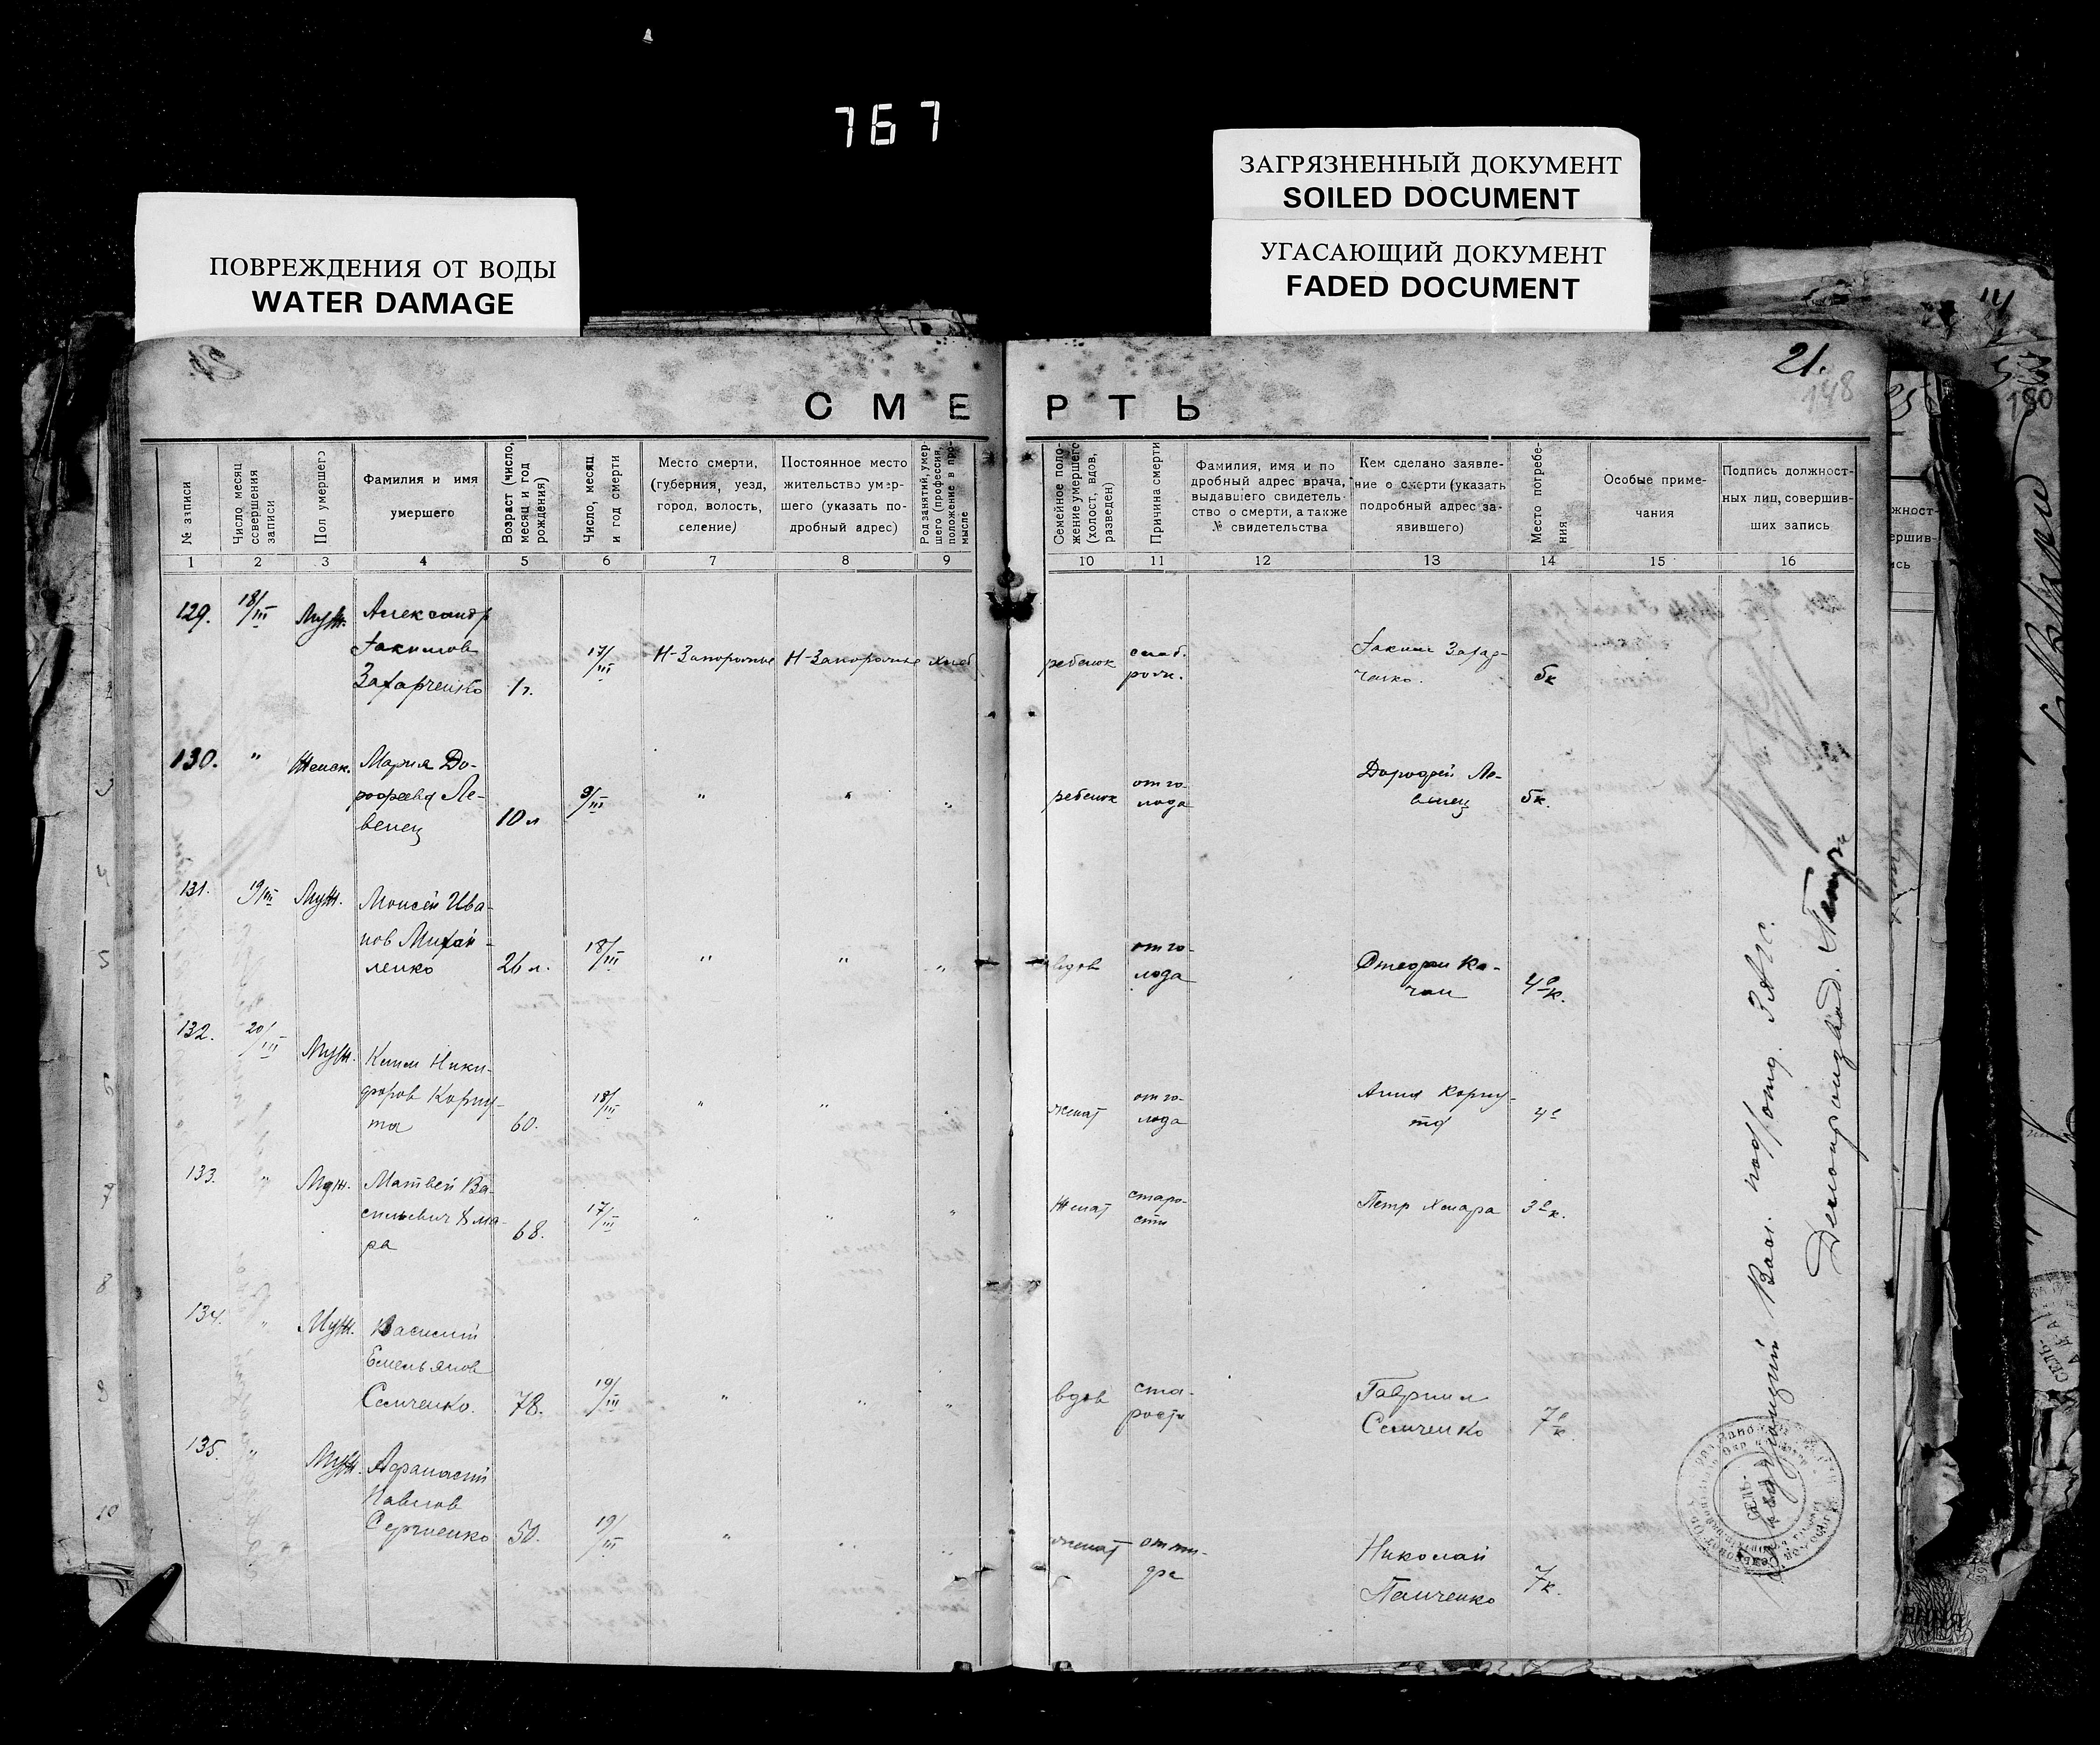 767
ЗАГРЯЗНЕННЫЙ ДОКУМЕНТ
SOILED DOCUMENT
УГАСАЮЩИЙ ДОКУМЕНТ
FADED DOCUMENT
ПОВРЕЖДЕНИЯ ОТ ВОДЫ
WATER DAMAGE
21.
148
СМЕРТЬ
№ записи
Число, месяц совершения записи
Пол умершего
Фамилия и имя умершего
Возраст (число, месяц и год рождения)
Число, месяц и год смерти
Место смерти, (губерния, уезд, город, волость, селение)
Постоянное место жительства умершего (указать подробный адрес)
Род занятий, умершего (профессия, положение в промысле
Семейное положение умершего (холост, вдов, разведен)
Причина смерти
Фамилия, имя и подробный адрес врача, выдавшего свидетельство о смерти, а также № свидетельства
Кем сделано заявление о смерти (указать подробный адрес заявившего)
Место погребения
Особые примечания
Подпись должностных лиц, совершивших запись
1 2 3 4 5 6 7 8 9 10 11 12 13 14 15 16
129. 18/III Муж. Александр
Захарченко 1г. 17/III Н-Запорожье Н-Запорожье хлеб ребенок
бк
130. " Женск. Мария До-
рофеева Ле-
венец 10 л 9/III " " " ребенок от го-
лода Дорофей Ле-
венец бк.
131. 19/III Муж. Моисей Ива-
нов Михай-
ленко 26 л. 18/III " " " вдов от го-
лода 4к.
132. 20/III Муж. Клим Ники-
форов Корну-
та 60. 18/III " " женат от го-
лода Анна Корну-
та 4
133. " Муж. Матвей Ва-
сильевич Хма-
ра 68. 17/III " " " женат старо-
сти Петр Хмара 3к.
134. " Муж. Василий
Емельянов
Семченко. 78. 19/III " " " вдов ста-
рости Гавриил
Семченко 7к.
135. " Муж. Афанасий
Павлов
Сергиенко 50. 19/III " " " женат от ти-
фа Николай
Панченко 7к.
Заведующий Вол. под/отд. ЗАГС.
Делопроизвод.